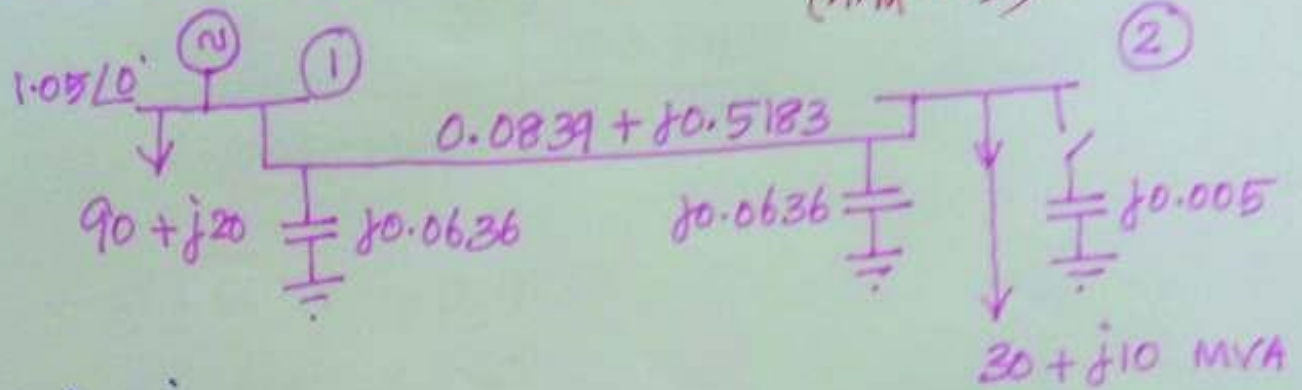 ②
~ ①
1.05∠0°
0.0839 + j0.5183
90 + j20
j0.0636
j0.0636
j0.005
30 + j10 MVA